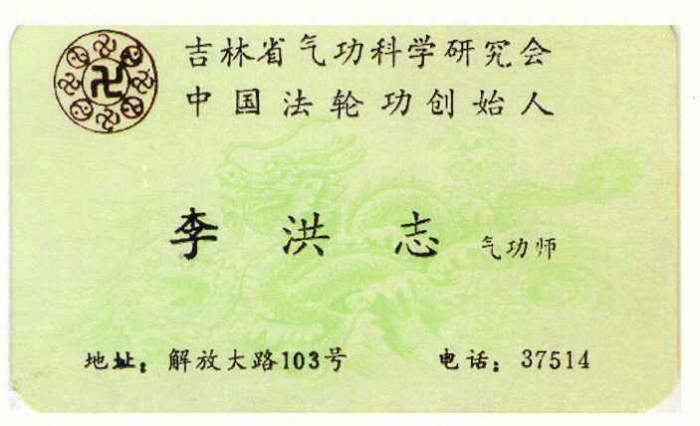 吉林省气功科学研究会
中国法轮功创始人
李洪志 气功师
地址：解放大路103号 电话：37514